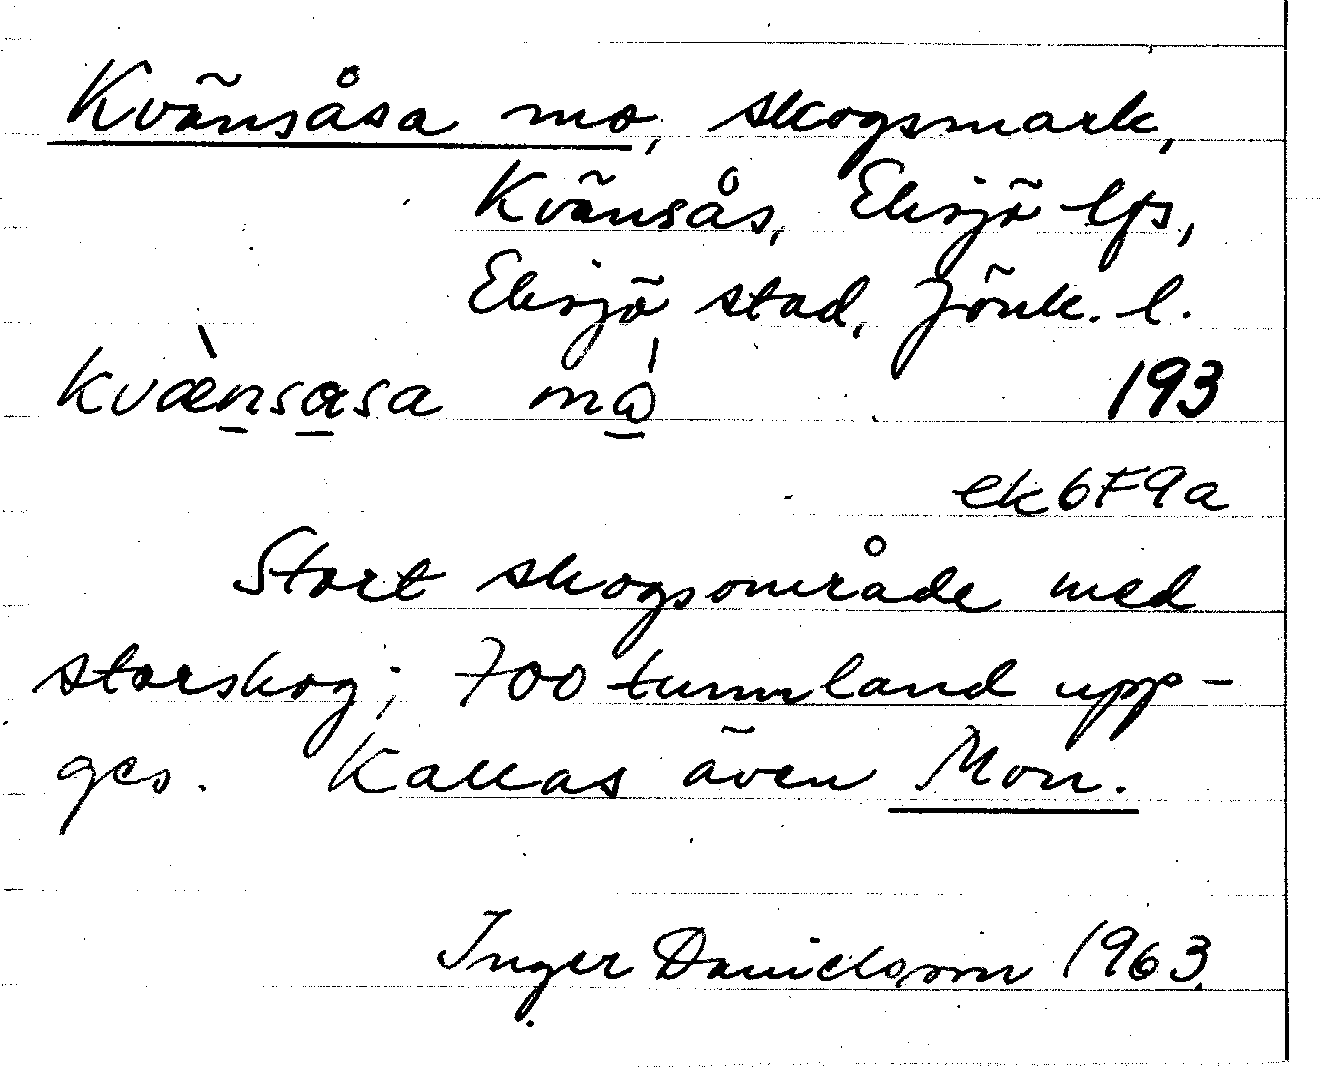 Kvänsåsa mo, skogsmark,
Kvänsås, Eksjö lfs,
Eksjö stad, Jönk. l.
kvæ̀nsasa må̍
193
ek6F9a
Stort skogsområde med
storskog; 700 tunnland upp-
ges. Kallas även Mon.
Inger Danielsson 1963.